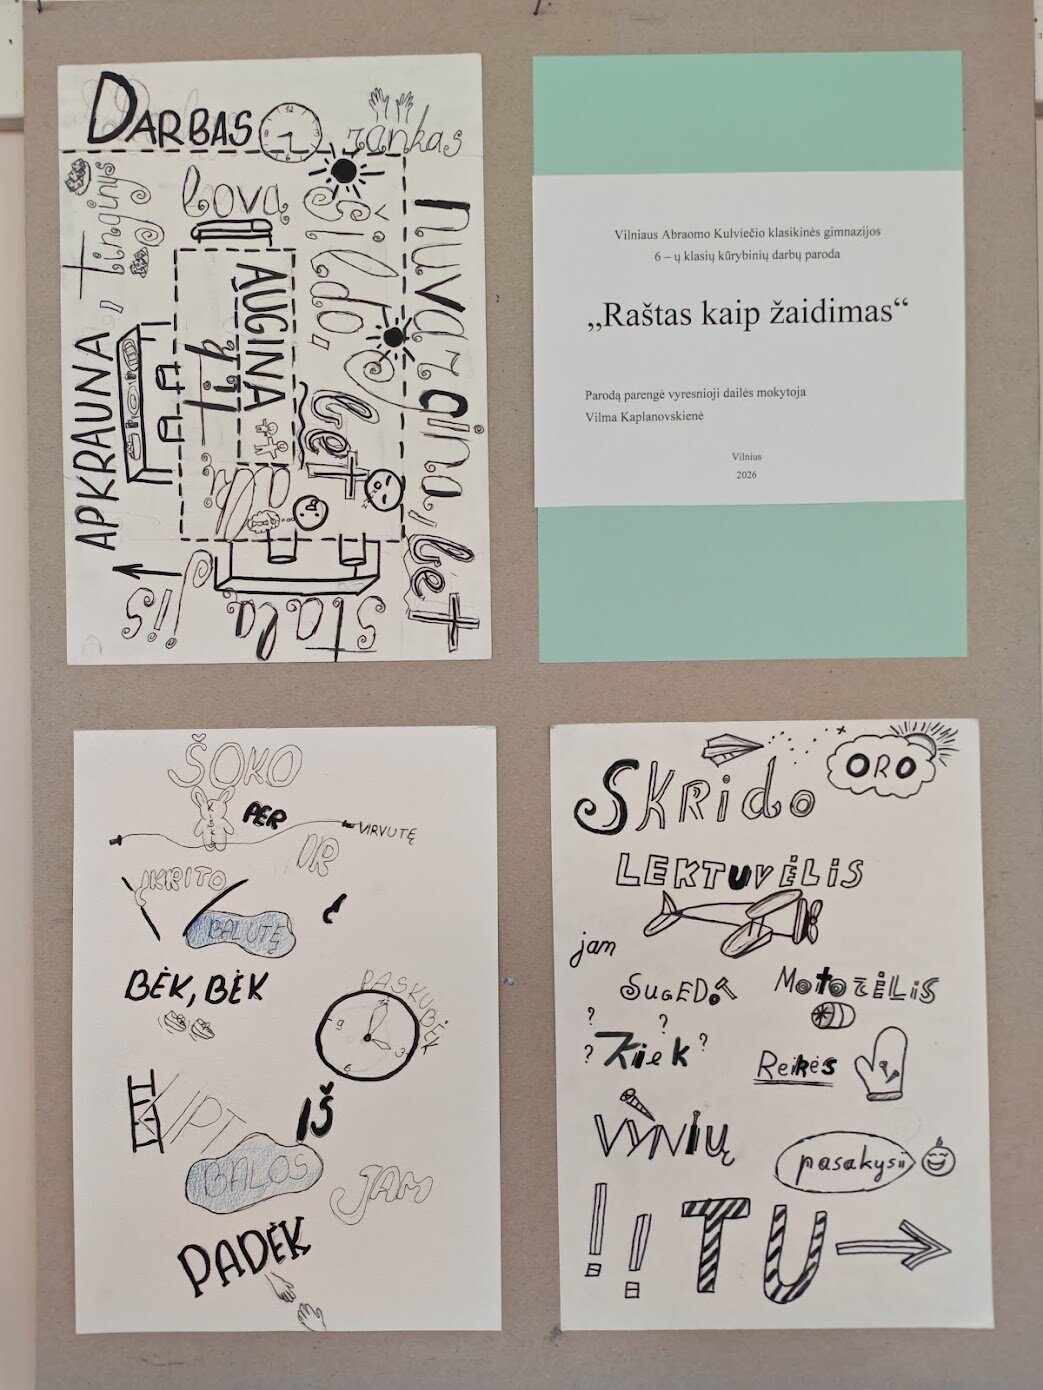 DARBAS
rankas
nuvargina, bet
stalą
jis
APKRAUNA,
tinginys
lovą
šildo,
bet
AUGINA
Vilniaus Abraomo Kulviečio klasikinės gimnazijos
6 – ų klasių kūrybinių darbų paroda
„Raštas kaip žaidimas“
Parodą parengė vyresnioji dailės mokytoja
Vilma Kaplanovskienė
Vilnius
2026
ŠOKO
PER
VIRVUTĘ
IR
ĮKRITO
Į
BALUTĘ
BĖK, BĖK
PASKUBĖK
LIPT
IŠ
BALOS
JAM
PADĖK
SKRido
ORO
LEKTUVĖLiS
jam
SUGEDo
MotoRĖLiS
? ? ? ?
Kiek
Reikės
VYNIŲ
pasakysi
!! TU